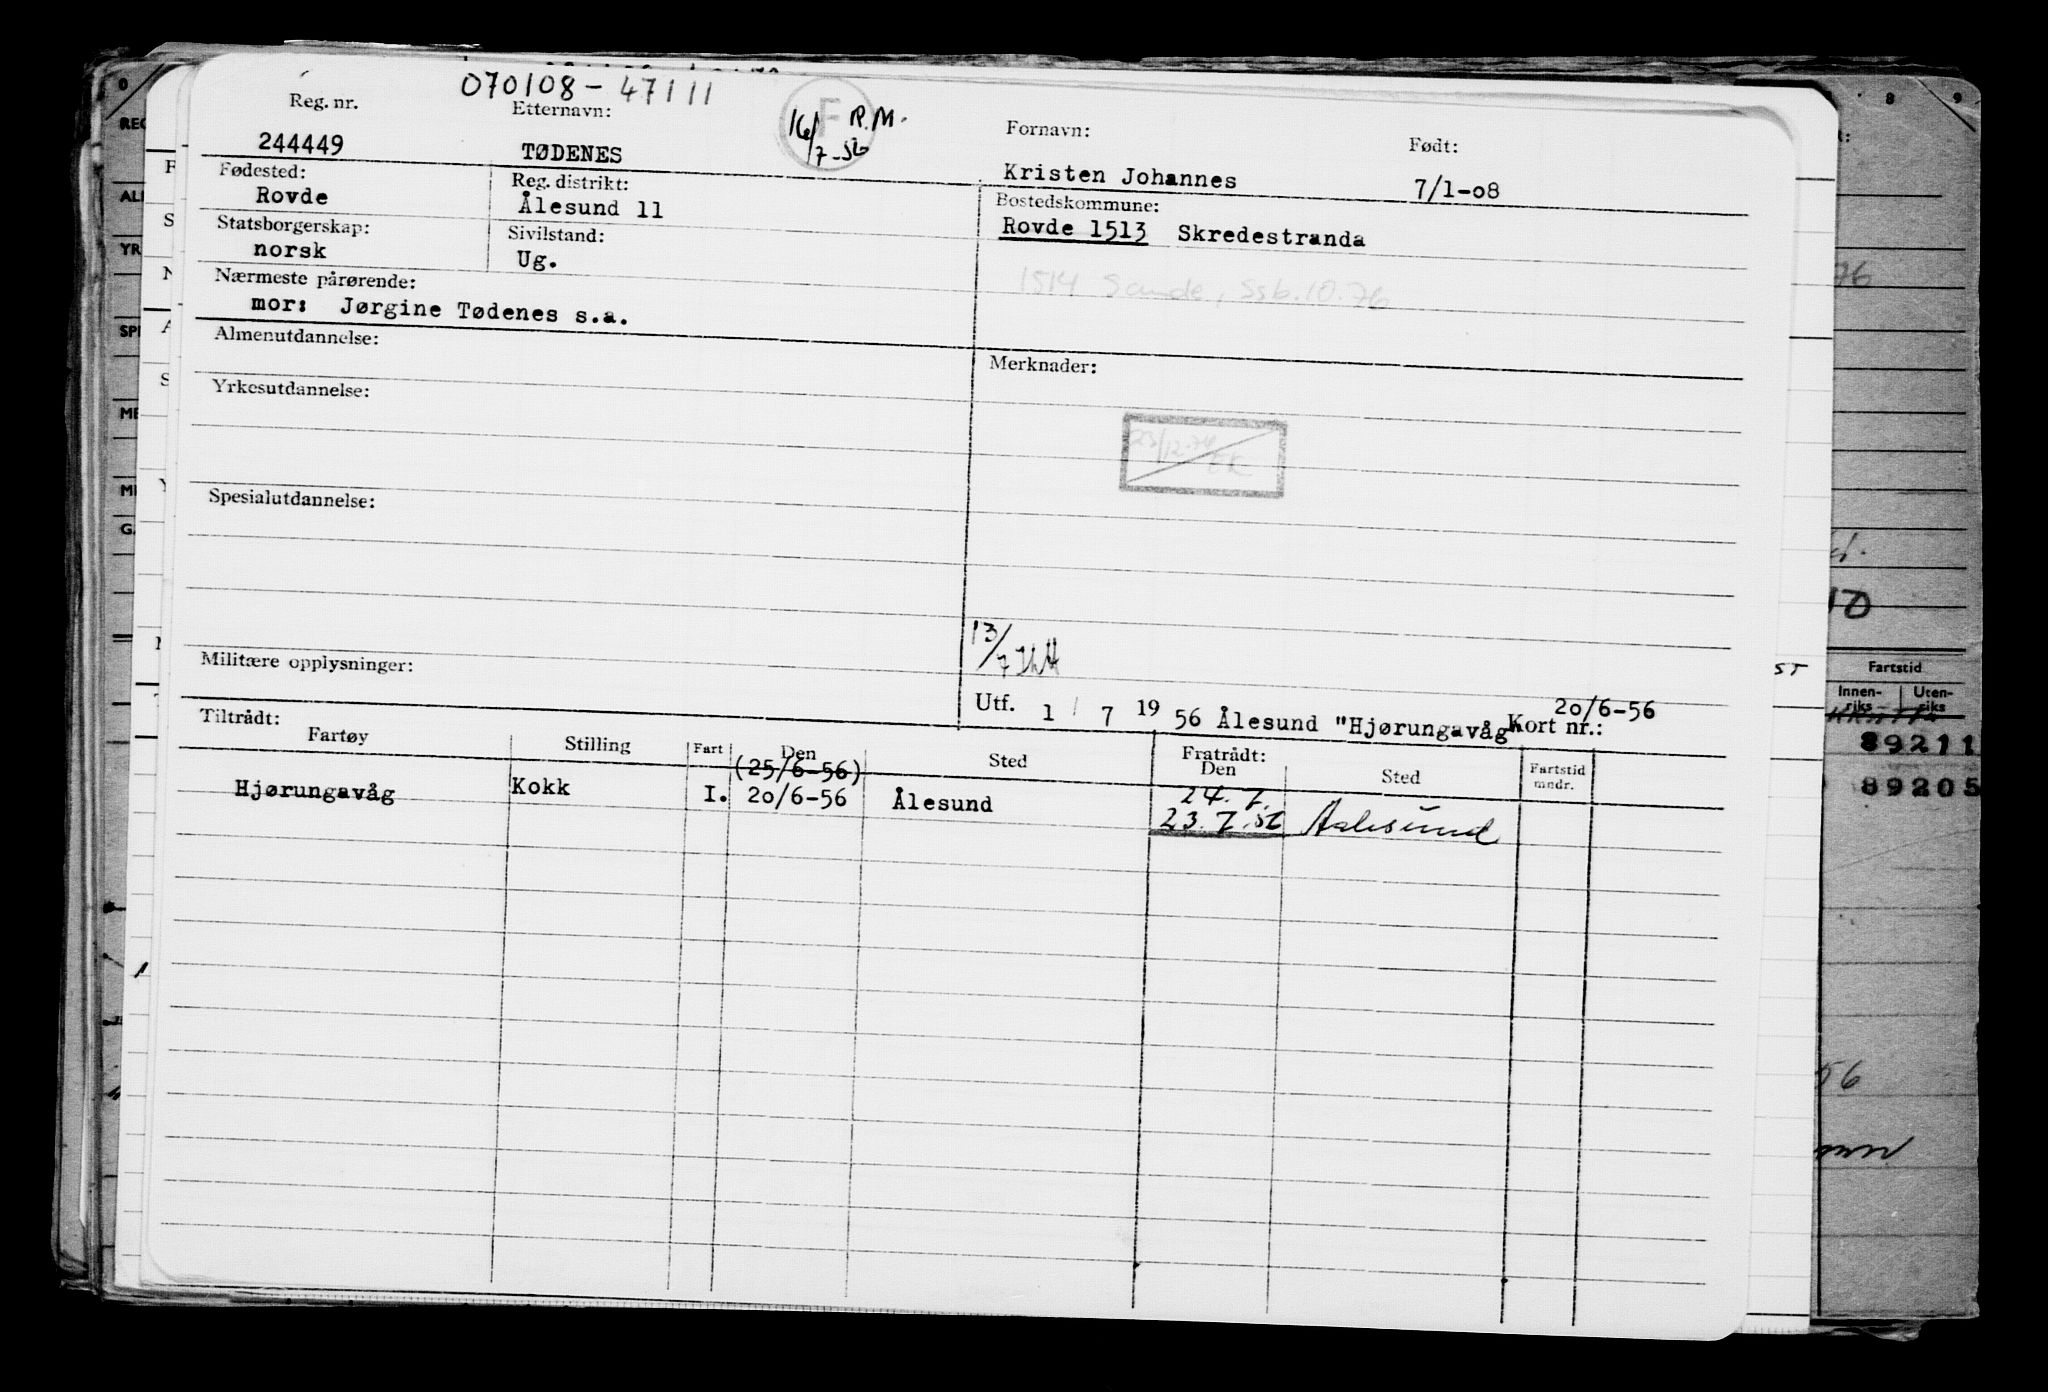 070108-47111
Reg. nr. Etternavn: Fornavn: Født:
F
16/7-56 R.M.
244449 TØDENES Kristen Johannes 7/1-08
Fødested: Reg. distrikt: Bostedskommune:
Rovde Ålesund 11 Rovde 1513 Skredestranda
Statsborgerskap: Sivilstand:
norsk Ug.
1514 Sande, Ssb.10.76
Nærmeste pårørende:
mor: Jørgine Tødenes s.a.
Almenutdannelse: Merknader:
Yrkesutdannelse:
23/12-74
Spesialutdannelse:
13/7
Militære opplysninger:
Utf. 1 / 7 19 56 Ålesund "Hjørungavåg Kort nr.: 20/6-56
Tiltrådt: Fratrådt:
Fartøy Stilling Fart Den Sted Den Sted Fartstid mndr.
(25/6-56) 24.7.
Hjørungavåg Kokk I. 20/6-56 Ålesund 23.7.56 Aalesund
8 9
76
10
ST
Fartstid
Innen-riks Uten-riks
89211
89205
56